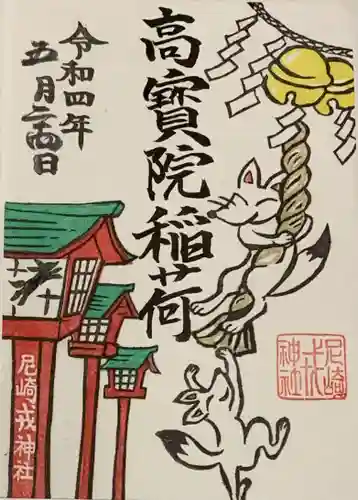 高寳院稲荷
令和四年
五月二十四日
奉拝
尼崎戎神社
尼崎
戎
神社